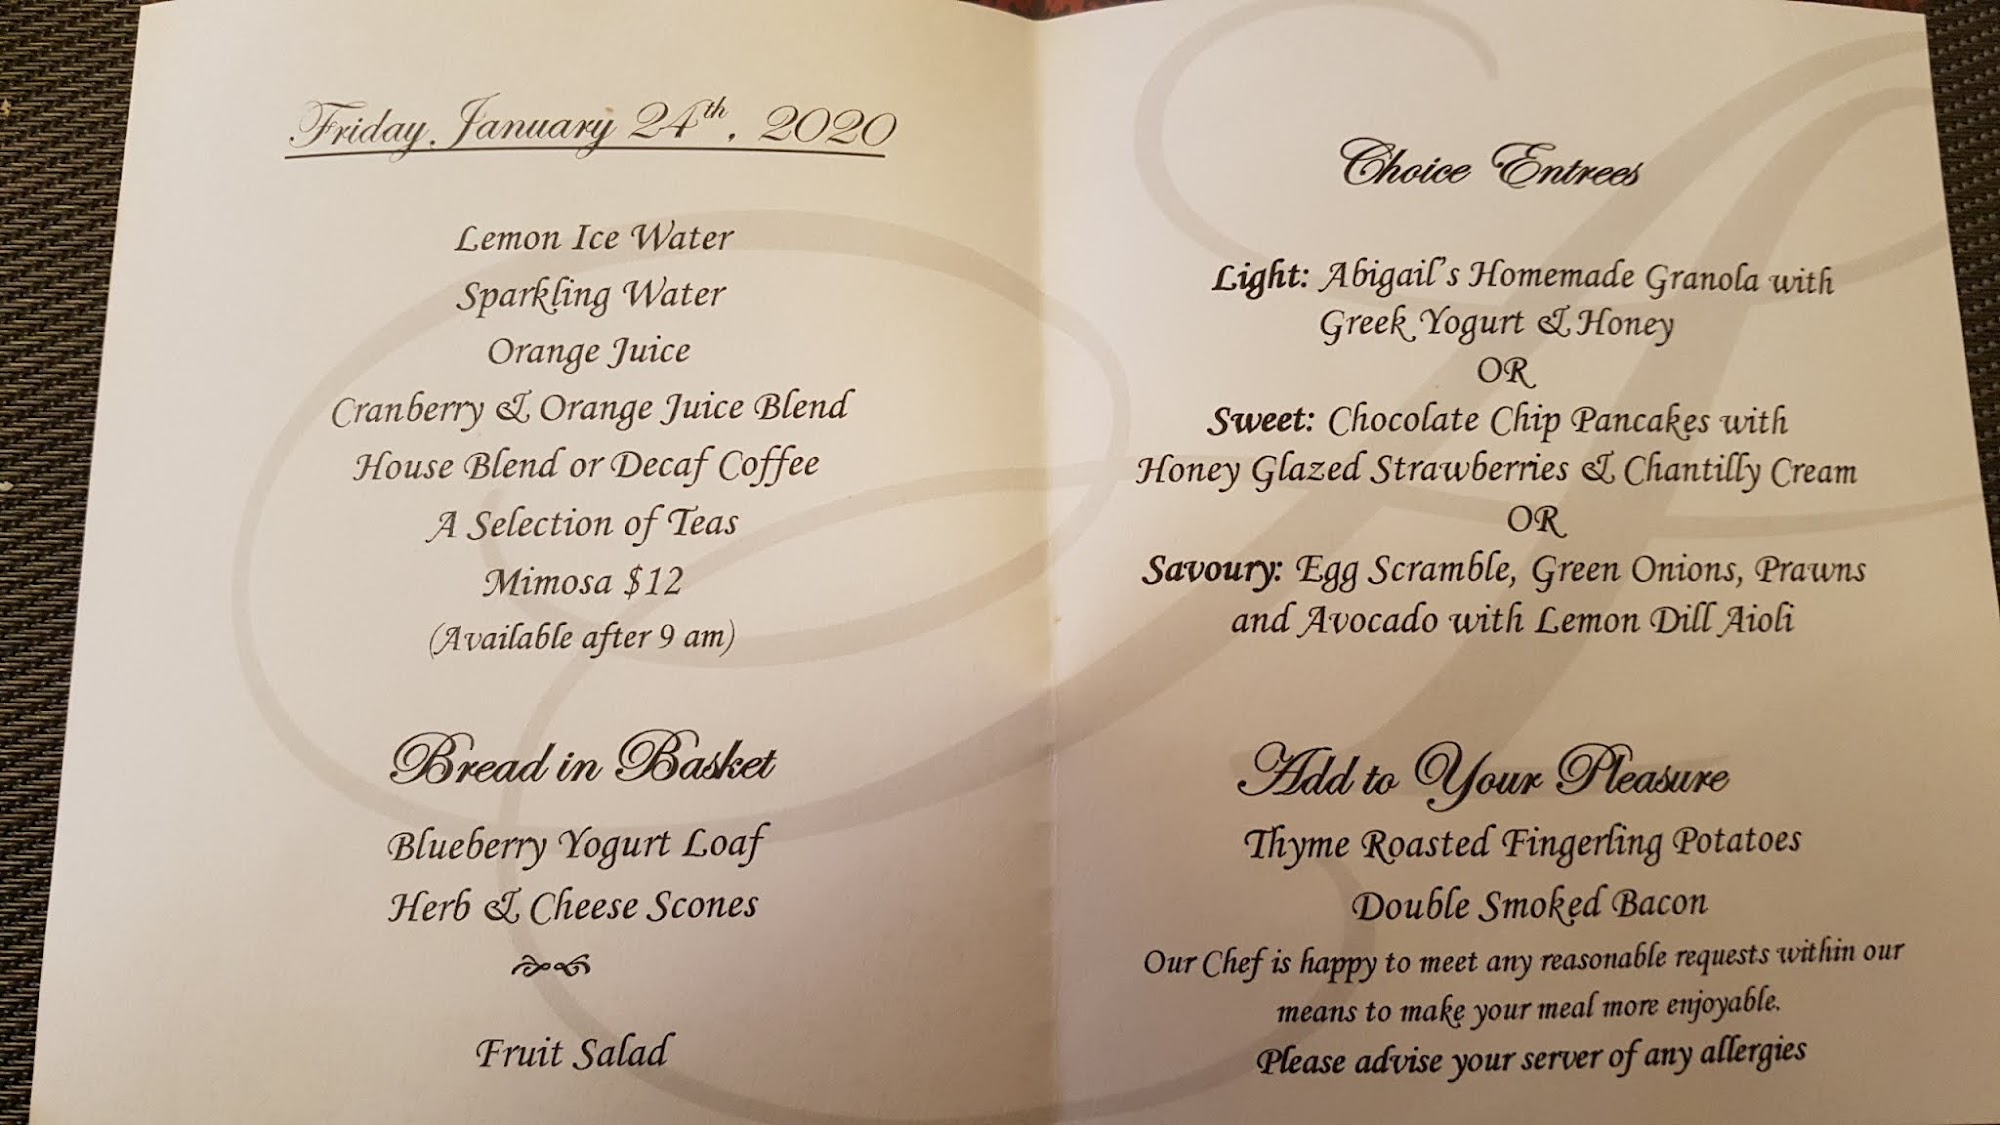 Friday, January 24th, 2020
Lemon Ice Water
Sparkling Water
Orange Juice
Cranberry & Orange Juice Blend
House Blend or Decaf Coffee
A Selection of Teas
Mimosa $12
(Available after 9 am)
Bread in Basket
Blueberry Yogurt Loaf
Herb & Cheese Scones
Fruit Salad
Choice Entrees
Light: Abigail's Homemade Granola with
Greek Yogurt & Honey
OR
Sweet: Chocolate Chip Pancakes with
Honey Glazed Strawberries & Chantilly Cream
OR
Savoury: Egg Scramble, Green Onions, Prawns
and Avocado with Lemon Dill Aioli
Add to Your Pleasure
Thyme Roasted Fingerling Potatoes
Double Smoked Bacon
Our Chef is happy to meet any reasonable requests within our
means to make your meal more enjoyable.
Please advise your server of any allergies